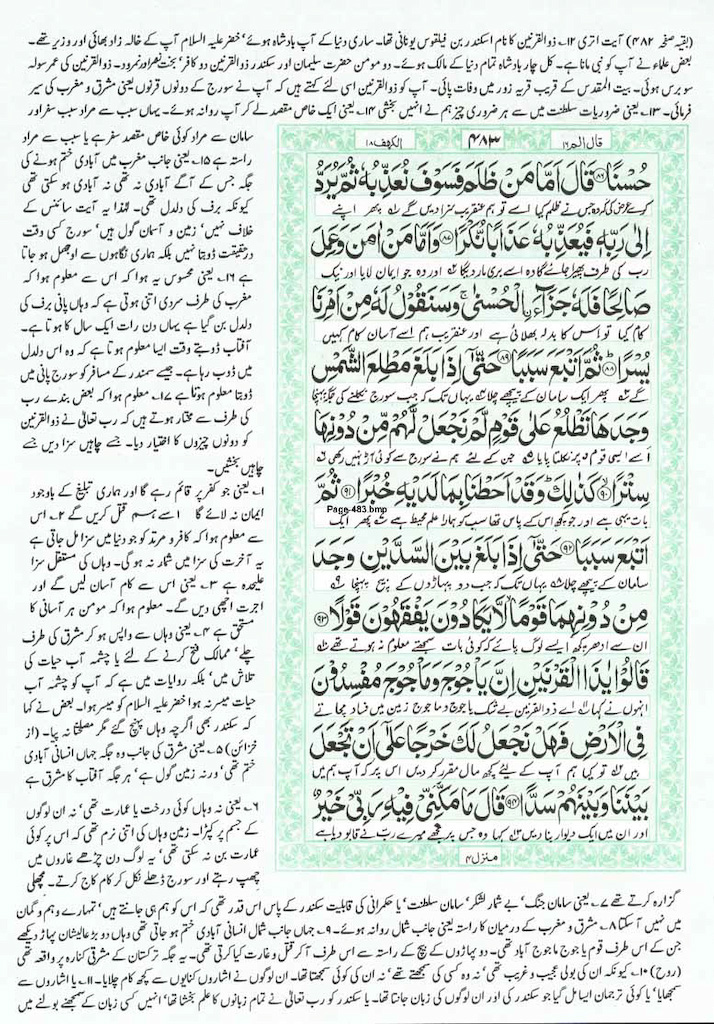 (بقیہ صفحہ ۴۸۲) آیت اتری ۱۲؎ ذوالقرنین کا نام اسکندر بن فیلقوس یونانی تھا۔ ساری دنیا کے آپ بادشاہ ہوئے' خضر علیہ السلام آپ کے خالہ زاد بھائی اور وزیر تھے۔
بعض علماء نے آپ کو نبی مانا ہے۔ کل چار بادشاہ تمام دنیا کے مالک ہوئے۔ دو مومن حضرت سلیمان اور سکندر ذوالقرنین دو کافر' بخت نصر اور نمرود۔ ذوالقرنین کی عمر سولہ
سو برس ہوئی۔ بیت المقدس کے قریب قریہ زور میں وفات پائی۔ آپ کو ذوالقرنین اسی لئے کہتے ہیں کہ آپ نے سورج کے دونوں قرنوں یعنی مشرق و مغرب کی سیر
فرمائی۔ ۱۳؎ یعنی ضروریات سلطنت میں سے ہر ضروری چیز ہم نے انہیں بخشی ۱۴؎ یعنی ایک خاص مقصد لے کر آپ روانہ ہوئے۔ یہاں سبب سے مراد سبب سفر اور
سامان سے مراد کوئی خاص مقصد سفر ہے یا سبب سے مراد
راستہ ہے ۱۵؎ یعنی جانب مغرب میں آبادی ختم ہونے کی
جگہ جس کے آگے آبادی نہ تھی نہ آبادی ہو سکتی تھی
کیونکہ برف کی دلدل تھی۔ لہٰذا یہ آیت سائنس کے
خلاف نہیں' زمین و آسمان گول ہیں' سورج کسی وقت
درحقیقت ڈوبتا نہیں بلکہ ہماری نگاہوں سے اوجھل ہو جاتا
ہے ۱۶؎ یعنی محسوس یہ ہوا کہ اس سے معلوم ہوا کہ
مغرب کی طرف سردی اتنی ہوتی ہے کہ وہاں پانی برف کی
دلدل بن گیا ہے یہاں دن رات ایک سال کا ہوتا ہے۔
آفتاب ڈوبتے وقت ایسا معلوم ہوتا ہے کہ وہ اس دلدل
میں ڈوب رہا ہے۔ جیسے سمندر کے مسافر کو سورج پانی میں
ڈوبتا معلوم ہوتا ہے ۱۷؎ معلوم ہوا کہ بعض بندے رب
کی طرف سے مختار ہوتے ہیں کہ رب تعالیٰ نے ذوالقرنین
کو دونوں چیزوں کا اختیار دیا۔ جسے چاہیں سزا دیں جسے
چاہیں بخشیں۔
۱؎ یعنی جو کفر پر قائم رہے گا اور ہماری تبلیغ کے باوجود
ایمان نہ لائے گا اسے ہم قتل کریں گے ۲؎ اس
سے معلوم ہوا کہ کافر و مرتد کو جو دنیا میں سزا مل جاتی ہے
یہ آخرت کی سزا میں شمار نہ ہو گی۔ وہاں کی مستقل سزا
علیحدہ ہے ۳؎ یعنی اس سے کام آسان لیں گے اور
اجرت اچھی دیں گے۔ معلوم ہوا کہ مومن ہر آسانی کا
مستحق ہے ۴؎ یعنی وہاں سے واپس ہو کر مشرق کی طرف
چلے' ممالک فتح کرنے کے لئے یا چشمہ آب حیات کی
تلاش میں' بلکہ روایات میں ہے کہ آپ کو چشمہ آب
حیات میسر نہ ہوا خضر علیہ السلام کو میسر ہوا۔ بعض نے کہا
کہ سکندر بھی اگرچہ وہاں پہنچ گئے مگر مصلحتاً نہ پیا۔ (از
خزائن) ۵؎ یعنی مشرق کی جانب وہ جگہ جہاں انسانی آبادی
ختم تھی' ورنہ زمین گول ہے' ہر جگہ آفتاب کا مشرق ہے
۶؎ یعنی نہ وہاں کوئی درخت یا عمارت تھی' نہ ان لوگوں
کے جسم پر کپڑا۔ زمین وہاں کی اتنی نرم تھی کہ اس پر کوئی
عمارت بن نہ سکتی تھی' یہ لوگ دن چڑھے غاروں میں
چھپ رہتے اور سورج ڈھلے نکل کر کام کاج کرتے۔ مچھلی
قال الم ۱۶ ۴۸۳ الکهف ۱۸
حُسْنًا ﴿۸۶﴾ قَالَ اَمَّا مَنْ ظَلَمَ فَسَوْفَ نُعَذِّبُهٗ ثُمَّ يُرَدُّ
کرے عرض کی کہ وہ جس نے ظلم کیا اسے تو ہم عنقریب سزا دیں گے ۱؎ پھر اپنے
اِلٰى رَبِّهٖ فَيُعَذِّبُهٗ عَذَابًا نُّكْرًا ﴿۸۷﴾ وَاَمَّا مَنْ اٰمَنَ وَعَمِلَ
رب کی طرف پھیرا جائے گا وہ اسے بری مار دیگا ۲؎ اور وہ جو ایمان لایا اور نیک
صَالِحًا فَلَهٗ جَزَآءَۨ الْحُسْنٰى ۚ وَسَنَقُوْلُ لَهٗ مِنْ اَمْرِنَا
کام کیا تو اس کا بدلہ بھلائی ہے اور عنقریب ہم اسے آسان کام کہیں
يُسْرًا ﴿۸۸﴾ ثُمَّ اَتْبَعَ سَبَبًا ﴿۸۹﴾ حَتّٰٓى اِذَا بَلَغَ مَطْلِعَ الشَّمْسِ
گے ۳؎ پھر ایک سامان کے پیچھے چلا ۴؎ یہاں تک کہ جب سورج نکلنے کی جگہ پہنچا
وَجَدَهَا تَطْلُعُ عَلٰى قَوْمٍ لَّمْ نَجْعَلْ لَّهُمْ مِّنْ دُوْنِهَا
اُسے ایسی قوم پر نکلتا پایا ۵؎ جن کے لئے ہم نے سورج سے کوئی آڑ نہیں رکھی ۶؎
سِتْرًا ﴿۹۰﴾ كَذٰلِكَ ؕ وَقَدْ اَحَطْنَا بِمَا لَدَيْهِ خُبْرًا ﴿۹۱﴾ ثُمَّ
Page-483.bmp
بات یہی ہے اور جو کچھ اس کے پاس تھا سب کو ہمارا علم محیط ہے ۷؎ پھر ایک
اَتْبَعَ سَبَبًا ﴿۹۲﴾ حَتّٰٓى اِذَا بَلَغَ بَيْنَ السَّدَّيْنِ وَجَدَ
سامان کے پیچھے چلا ۸؎ یہاں تک کہ جب دو پہاڑوں کے بیچ پہنچا ۹؎
مِنْ دُوْنِهِمَا قَوْمًا ۙ لَّا يَكَادُوْنَ يَفْقَهُوْنَ قَوْلًا ﴿۹۳﴾
ان سے ادھر کچھ ایسے لوگ پائے کہ کوئی بات سمجھتے معلوم نہ ہوتے تھے ۱۰؎
قَالُوْا يٰذَا الْقَرْنَيْنِ اِنَّ يَاْجُوْجَ وَمَاْجُوْجَ مُفْسِدُوْنَ
انہوں نے کہا ۱۱؎ اے ذوالقرنین بے شک یاجوج و ماجوج زمین میں فساد مچاتے
فِى الْاَرْضِ فَهَلْ نَجْعَلُ لَكَ خَرْجًا عَلٰٓى اَنْ تَجْعَلَ
ہیں ۱۲؎ تو کیا ہم آپ کے لیئے کچھ مال مقرر کر دیں اس پر کہ آپ ہم میں
بَيْنَنَا وَبَيْنَهُمْ سَدًّا ﴿۹۴﴾ قَالَ مَا مَكَّنِّىْ فِيْهِ رَبِّىْ خَيْرٌ
اور ان میں ایک دیوار بنا دیں ۱۳؎ کہا وہ جس پر مجھے میرے رب نے قابو دیا ہے
منزل ۴
گزارہ کرتے تھے ۷؎ یعنی سامان جنگ' بے شمار لشکر' سامان سلطنت' یا حکمرانی کی قابلیت سکندر کے پاس اس قدر تھی کہ اس کو ہم ہی جانتے ہیں' تمہارے وہم و گمان
میں نہیں آ سکتا ۸؎ مشرق و مغرب کے درمیان کا راستہ یعنی جانب شمال روانہ ہوئے۔ ۹؎ جہاں جانب شمال انسانی آبادی ختم ہو جاتی تھی وہاں دو بڑے عالیشان پہاڑ دیکھے
جن کے اس طرف قوم یاجوج ماجوج آباد تھی۔ دو پہاڑوں کے بیچ کے راستہ سے اس طرف آ کر قتل و غارت کیا کرتی تھی۔ یہ جگہ ترکستان کے مشرقی کنارہ پر واقعہ تھی
(روح) ۱۰؎ کیونکہ ان کی بولی عجیب و غریب تھی' نہ وہ کسی کی سمجھتے تھے' نہ ان کی کوئی سمجھتا تھا۔ ان لوگوں نے اشاروں کنایوں سے کچھ کام چلایا۔ ۱۱؎ یا اشاروں سے
سمجھایا' یا کوئی ترجمان ایسا مل گیا جو سکندر کی اور ان لوگوں کی زبان جانتا تھا۔ یا سکندر کو رب تعالیٰ نے تمام زبانوں کا علم بخشا تھا' انہیں کسی زبان کے سمجھنے بولنے میں